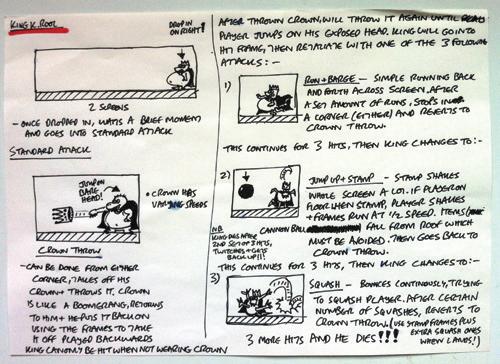 KING K. ROOL
DROP IN
ON RIGHT!
2 SCREENS
- ONCE DROPPED IN, WAITS A BRIEF MOMENT
AND GOES INTO STANDARD ATTACK
STANDARD ATTACK
JUMP ON
BARE
HEAD!
• CROWN HAS
VARYING SPEEDS
CROWN THROW
- CAN BE DONE FROM EITHER
CORNER, TAKES OFF HIS
CROWN + THROWS IT. CROWN
IS LIKE A BOOMERANG, RETURNS
TO HIM + HE PUTS IT BACK ON
USING THE FRAMES TO TAKE
IT OFF PLAYED BACKWARDS
KING CANOT BE HIT WHEN NOT WEARING CROWN
AFTER THROWN CROWN, WILL THROW IT AGAIN UNTIL
PLAYER JUMPS ON HIS EXPOSED HEAD. KING WILL GO INTO
HIT FRAME, THEN RETALIATE WITH ONE OF THE 3 FOLLOWING
ATTACKS:-
1)
RUN + BARGE - SIMPLE RUNNING BACK
AND FORTH ACROSS SCREEN. AFTER
A SET AMOUNT OF RUNS, STOPS IN
A CORNER (EITHER) AND REVERTS TO
CROWN THROW.
THIS CONTINUES FOR 3 HITS, THEN KING CHANGES TO:-
2)
JUMP UP + STAMP - STAMP SHAKES
WHOLE SCREEN A LOT. IF PLAYER ON
FLOOR WHEN STAMP, PLAYER SHAKES
+ FRAMES RUN AT 1/2 SPEED. ITEMS
CANNON BALL FALL FROM ROOF WHICH
MUST BE AVOIDED. THEN GOES BACK TO
CROWN THROW.
NB
KING DIES AFTER
2ND SET OF 3 HITS,
TWITCHES + GETS
BACK UP!!
THIS CONTINUES FOR 3 HITS, THEN KING CHANGES TO:-
3)
SQUASH - BOUNCES CONTINUOUSLY, TRYING
TO SQUASH PLAYER. AFTER CERTAIN
NUMBER OF SQUASHES, REVERTS TO
CROWN THROW. (USE STAMP FRAMES PLUS
EXTRA SQUASH ONES
WHEN LANDS!)
3 MORE HITS AND HE DIES!!!